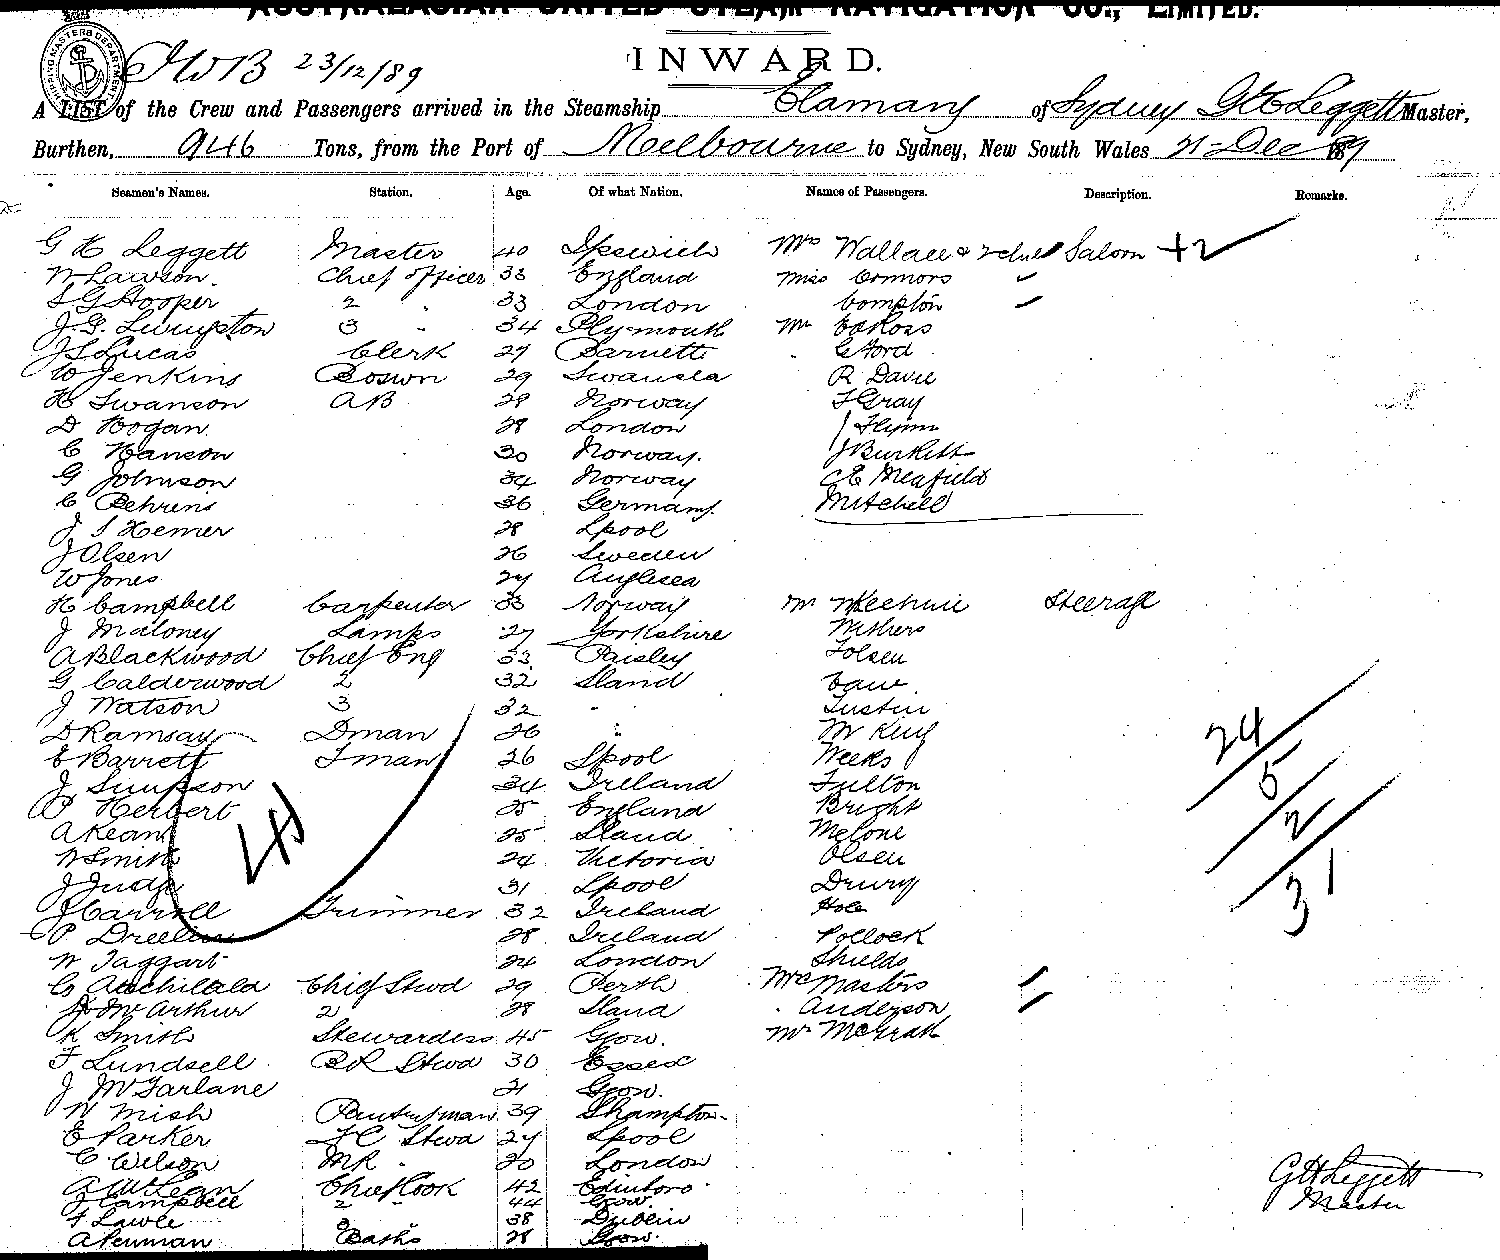 AUSTRALASIAN UNITED STEAM NAVIGATION CO., LIMITED.
23/12/89
INWARD.
A LIST of the Crew and Passengers arrived in the Steamship Elamang of Sydney G H Leggett Master,
Burthen, 946 Tons, from the Port of Melbourne to Sydney, New South Wales 21 Dec 1889
Seamen's Names. Station. Age. Of what Nation. Names of Passengers. Description. Remarks.
G H Leggett Master 40 Ipswich Mrs Wallace & Saloon +2
W Lawson Chief officer 33 England Miss Connors
S G Hooper 2 " 33 London Compton
J. G. Livingston 3 " 34 Plymouth Mr Ross
J S Lucas Clerk 27 Barnett G Ford
W Jenkins Boswn 29 Swansea R Davie
H Swanson AB 29 Norway F Gray
D Hogan 28 London Flynn
C Hanson 30 Norway. J Burkett
G Johnson 34 Norway C E Meafield
C Behrens 36 Germany Mitchell
J. S Hemer 28 Lpool
J Olsen 26 Sweden
W Jones 27 Anglesea
H Campbell Carpenter 33 Norway Mr Steerage
J Maloney Lamps 27 Yorkshire Withers
A Blackwood Chief Eng 33 Paisley Folsen
G Calderwood 2 32 Sland
J Watson 3 32 " Tustin
D Ramsay Dman 26 " McKey
E Barrett Fman 26 Lpool Weeks
J Simpson 34 Ireland Fulton
P Herbert 25 England Bright
A Kean 25 Sland Melone
W Smith 24 Victoria Olsen
J Judge 31 Lpool Drury
J Carroll Trimmer 32 Ireland Hole
P Dreelin 28 Ireland Pollock
W Taggart 24 London Shields
G Auchilald Chief Stwd 29 Perth Mrs Masters
J McArthur 2 28 Sland Anderson
K Smith Stewardess 45 Gow. Mr McGrath
F Lundsell BR Stwd 30 Essex
J McFarlane 21 Gow.
W Mish Pantryman 39 Shampton
E Parker FC Stwd 27 Lpool
C Wilson MR " 20 London
A McLean Chief Cook 42 Edinboro
J Campbell 2 " 44 Gow.
F Lawle 3 38 Dublin
A Penman Baths 28 Gow.
41
24
5
2
31
G H Leggett
Master